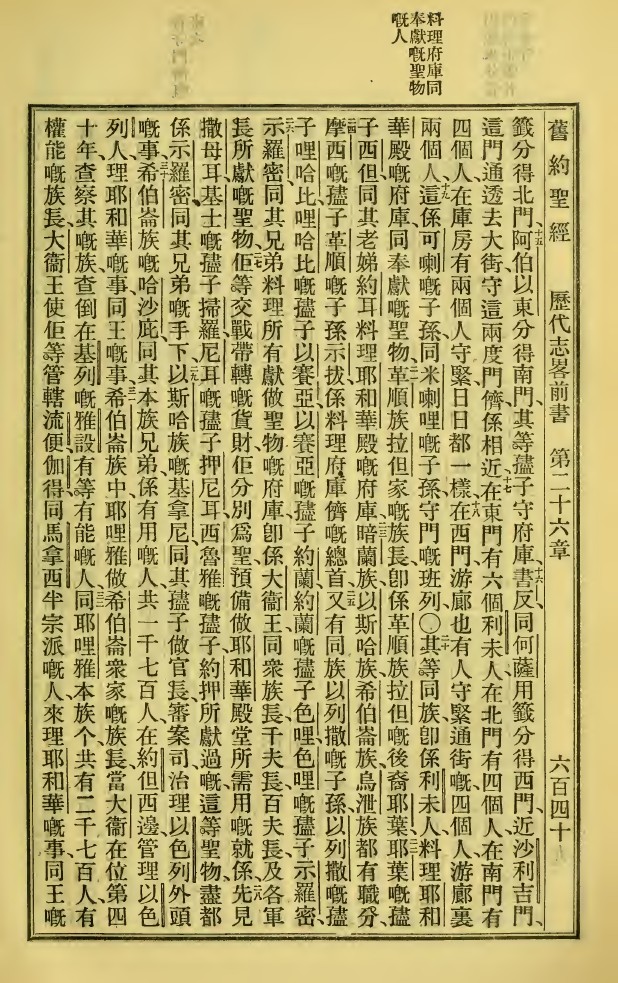 料理府庫同
奉獻嘅聖物
嘅人
舊約聖經　歷代志畧前書　第二十六章　六百四十
籤分得北門、十五阿伯以東分得南門、其等孻子守府庫、十六書反、同何薩用籤分得西門、近沙利吉門、
這門通透去大街、守這兩度門儕係相近、十七在東門有六個利未人、在北門有四個人、在南門有
四個人、在庫房有兩個人守緊、日日都一樣、十八在西門游廊也有人守緊、通街嘅四個人、游廊裏
兩個人、十九這係可喇嘅子孫、同米喇哩嘅子孫、守門嘅班列、〇二十其等同族、卽係利未人、料理耶和
華殿嘅府庫、同奉獻嘅聖物、二一革順族拉但家嘅族長、卽係革順族拉但嘅後裔耶葉、二二耶葉嘅孻
子西但、同其老娣約耳、料理耶和華殿嘅府庫、二三暗蘭族、以斯哈族、希伯崙族、烏泄族、都有職分、
二四摩西嘅孻子革順嘅子孫示拔、係料理府庫儕嘅總首、二五又有同族以列撒嘅子孫、以列撒嘅孻
子哩哈比、哩哈比嘅孻子以賽亞、以賽亞嘅孻子約蘭、約蘭嘅孻子色哩、色哩嘅孻子示羅密、
二六示羅密同其兄弟、料理所有獻做聖物嘅府庫、卽係大衞王、同衆族長、千夫長、百夫長、及各軍
長所獻嘅聖物、二七佢等交戰帶轉嘅貨財、佢分別爲聖、預備做耶和華殿堂所需用嘅、二八就係先見
撒母耳、基士嘅孻子掃羅、尼耳嘅孻子押尼耳、西魯雅嘅孻子約押、所獻過嘅、這等聖物、盡都
係示羅密同其兄弟嘅手下、二九以斯哈族嘅基拿尼、同其孻子做官長、審案司、治理以色列外頭
嘅事、三十希伯崙族嘅哈沙庇、同其本族兄弟、係有用嘅人、共一千七百人、在約但西邊、管理以色
列人、理耶和華嘅事、同王嘅事、三一希伯崙族中、耶哩雅做希伯崙衆家嘅族長、當大衞在位第四
十年、查察其嘅族、查倒在基列嘅雅設、有等有能嘅人、三二同耶哩雅本族个、共有二千七百人、有
權能嘅族長、大衞王使佢等管轄流便、伽得、同馬拿西半宗派嘅人、來理耶和華嘅事、同王嘅